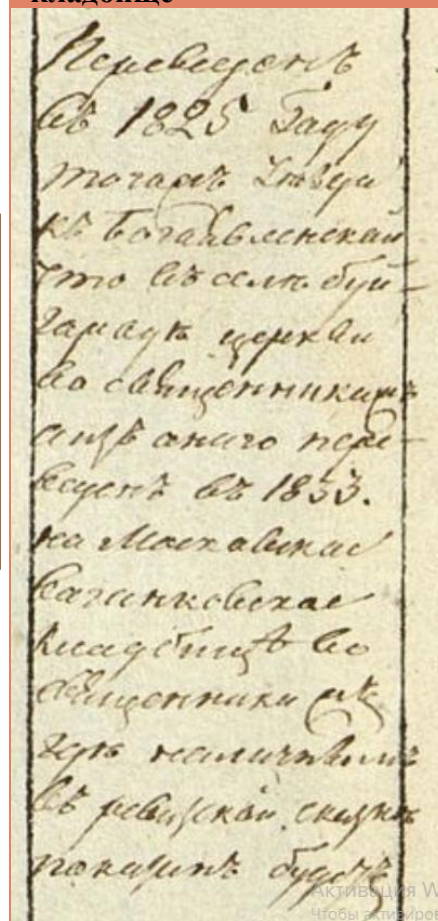 кладбище
Переведенъ
въ 1825 Году
тогожъ уезда
къ Богаявленской
что въ селе Буй-
Гародке церкви
во священники
а изъ оного пере-
веденъ въ 1833.
на Московское
Ваганковское
Кладбище во
священники
где наличнымъ
въ ревизской скаске
показанъ будетъ
Активация W
Чтобы активиров